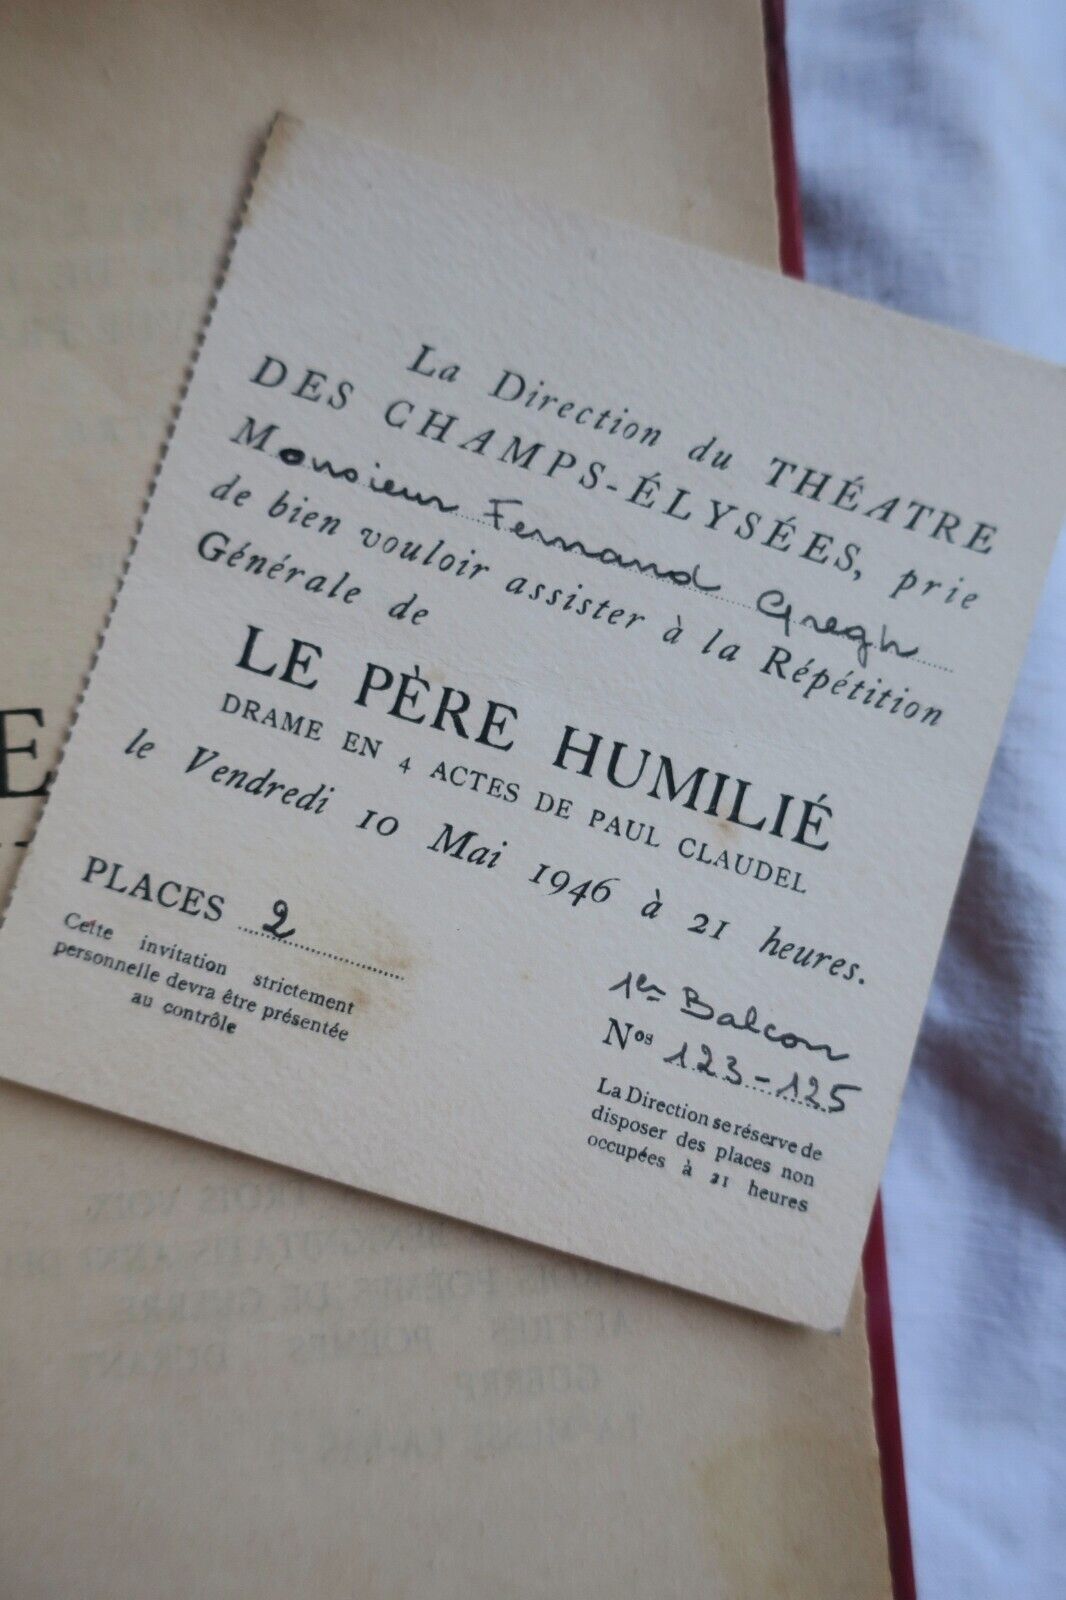 La Direction du THÉATRE
DES CHAMPS-ÉLYSÉES, prie
Monsieur Fernand Gregh
de bien vouloir assister à la Répétition
Générale de
LE PÈRE HUMILIÉ
DRAME EN 4 ACTES DE PAUL CLAUDEL
le Vendredi 10 Mai 1946 à 21 heures.
PLACES 2
Cette invitation strictement
personnelle devra être présentée
au contrôle
1er Balcon
Nos 123-125
La Direction se réserve de
disposer des places non
occupées à 21 heures
E
TROIS POÈMES DE GUERRE
AUTRES POÈMES DURANT
GUERRE